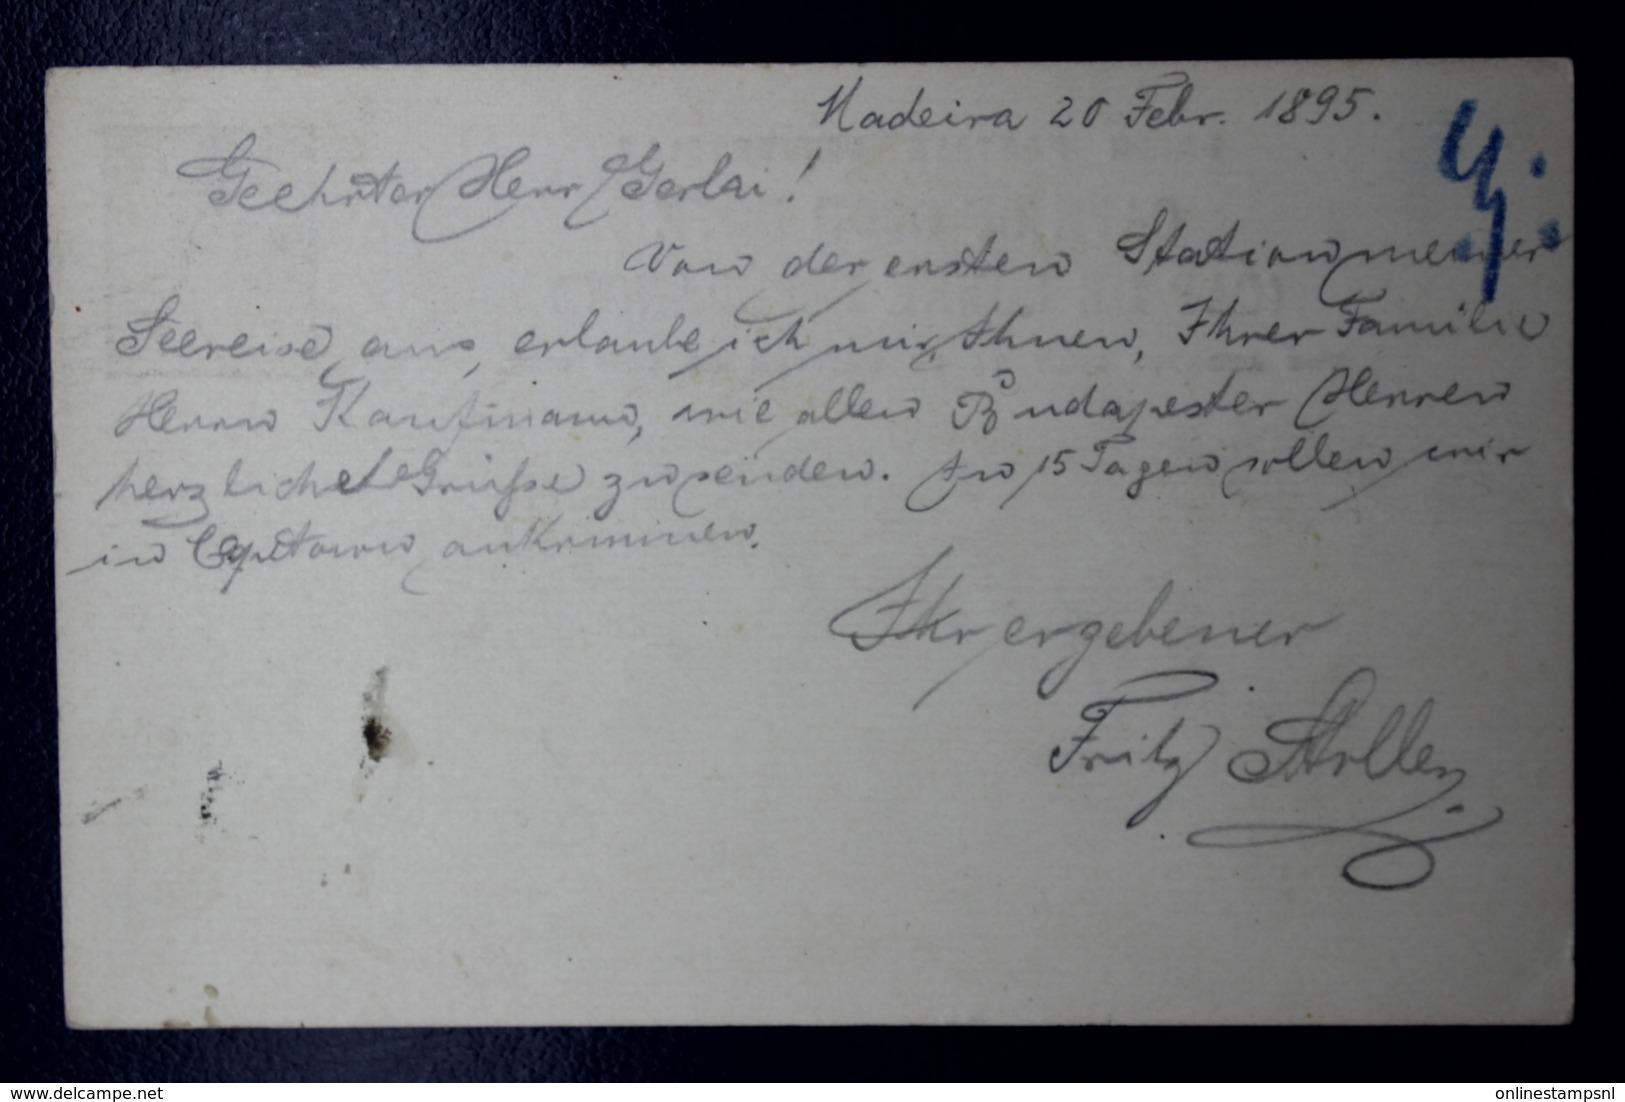 Madeira 20 Febr. 1895.
Geehrter Herr Gerlai!
Von der ersten Station meiner
Seereise aus, erlaube ich mir, Ihnen, Ihrer Familie
Herrn Kaufmann, wie allen Budapester Herren
herzliche Grüsse zu senden. In 15 Tagen sollen wir
in Capetown ankommen.
Ihr ergebener
Fritz
delcampe.net
onlinestampsnl